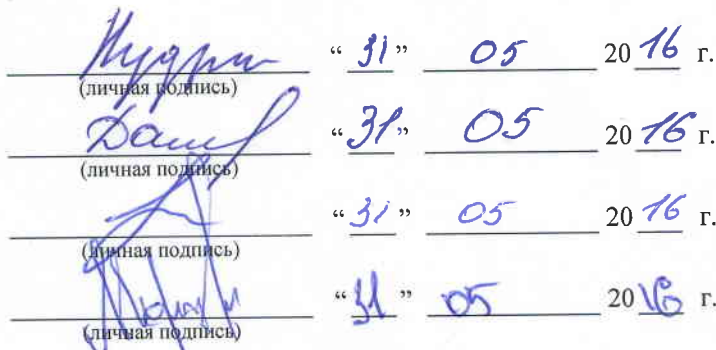 “ 31 ” 05 20 16 г.
(личная подпись)
“ 31 ” 05 20 16 г.
(личная подпись)
“ 31 ” 05 20 16 г.
(личная подпись)
“ 31 ” 05 20 16 г.
(личная подпись)